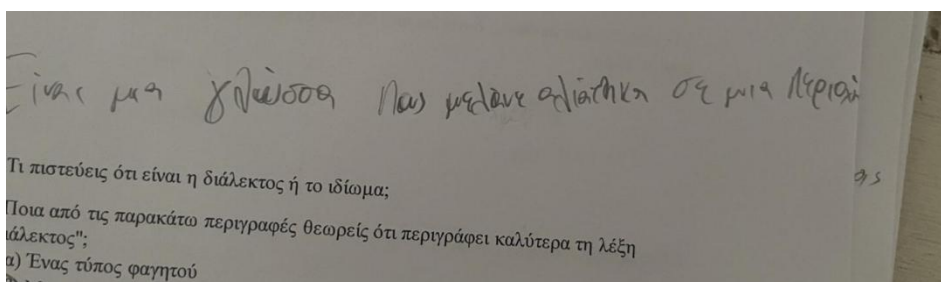 Είναι μια γλώσσα που μιλανε αλιότηκα σε μια περιοχή
Τι πιστεύεις ότι είναι η διάλεκτος ή το ιδίωμα;
Ποια από τις παρακάτω περιγραφές θεωρείς ότι περιγράφει καλύτερα τη λέξη
ιάλεκτος";
α) Ένας τύπος φαγητού